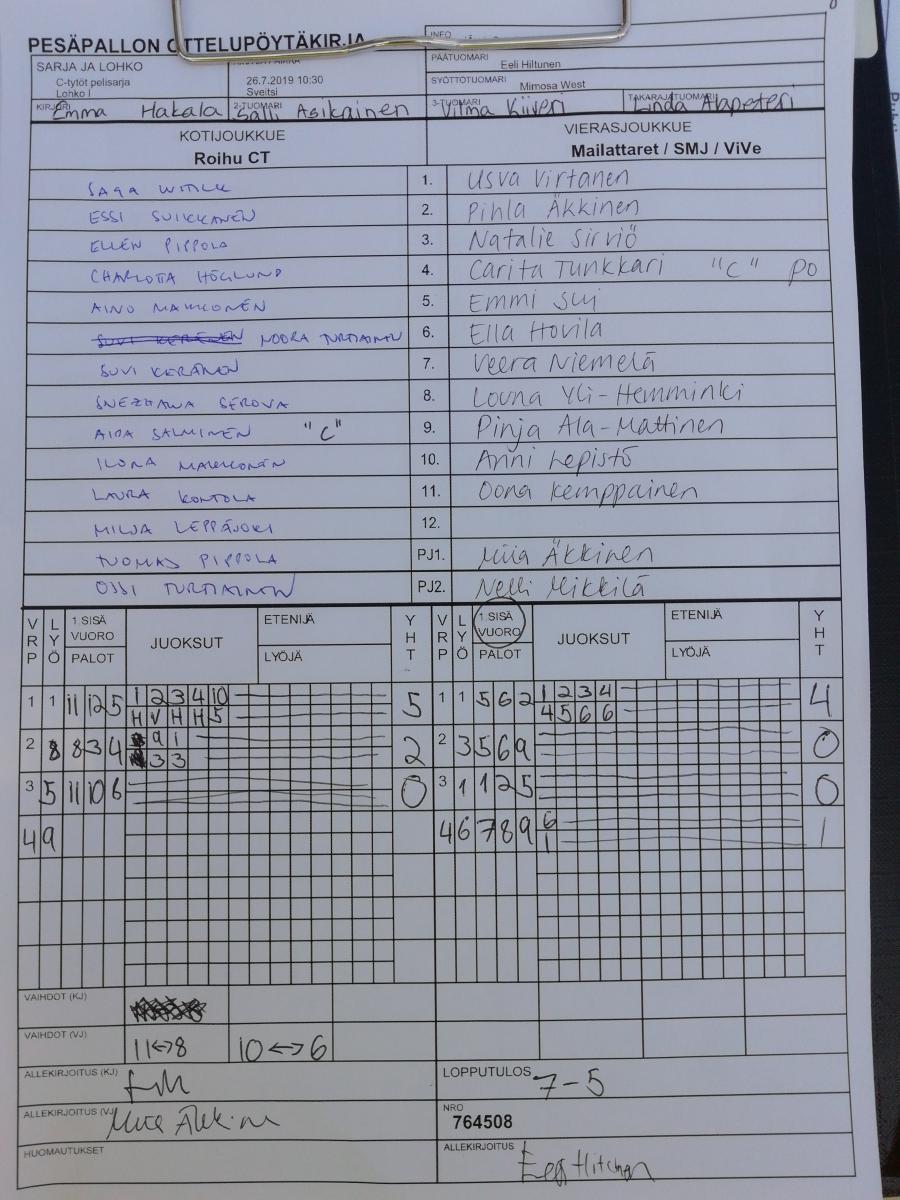 PESÄPALLON OTTELUPÖYTÄKIRJA
INFO
SARJA JA LOHKO
C-tytöt pelisarja
Lohko I
26.7.2019 10:30
Sveitsi
PÄÄTUOMARI
Eeli Hiltunen
SYÖTTÖTUOMARI
Mimosa West
KIRJURI Emma Hakala
2-TUOMARI Salli Asikainen
3-TUOMARI Vilma Kiiveri
TAKARAJATUOMARI Linda Alapeteri
KOTIJOUKKUE
Roihu CT
VIERASJOUKKUE
Mailattaret / SMJ / ViVe
SAGA 1. Usva Virtanen
ESSI SUIKKANEN 2. Pihla Äkkinen
ELLEN PIPPOLA 3. Natalie Sirviö
CHARLOTTA HÖGLUND 4. Carita Tunkkari "C" PO
AINO MAKKONEN 5. Emmi Sui
SUVI KERÄNEN NOORA TURTIAINEN 6. Ella Hovila
SUVI KERÄNEN 7. Veera Niemelä
SNEZHANA SEROVA 8. Louna Yli-Hemminki
AIDA SALMINEN "C" 9. Pinja Ala-Mattinen
ILONA MAKKONEN 10. Anni Lepistö
LAURA KONTOLA 11. Oona Kemppainen
MILJA LEPPÄJOKI 12.
TUOMAS PIPPOLA PJ1. Miia Äkkinen
OSSI TURTIAINEN PJ2. Nelli Mikkilä
VRP LYÖ 1.SISÄ VUORO PALOT JUOKSUT ETENIJÄ LYÖJÄ YHT VRP LYÖ 1.SISÄ VUORO PALOT JUOKSUT ETENIJÄ LYÖJÄ YHT
1 1 11 12 5 1 2 3 4 10 5 1 1 5 6 2 1 2 3 4 4
H V H H 5 4 5 6 6
2 8 8 3 4 9 1 2 2 3 5 6 9 0
3 3
3 5 11 10 6 0 3 1 1 2 5 0
4 9 4 6 7 8 9 6 1
1
VAIHDOT (KJ)
VAIHDOT (VJ)
11↔8 10↔6
ALLEKIRJOITUS (KJ)
LOPPUTULOS 7-5
ALLEKIRJOITUS (VJ) Miia Äkkinen
NRO
764508
HUOMAUTUKSET
ALLEKIRJOITUS